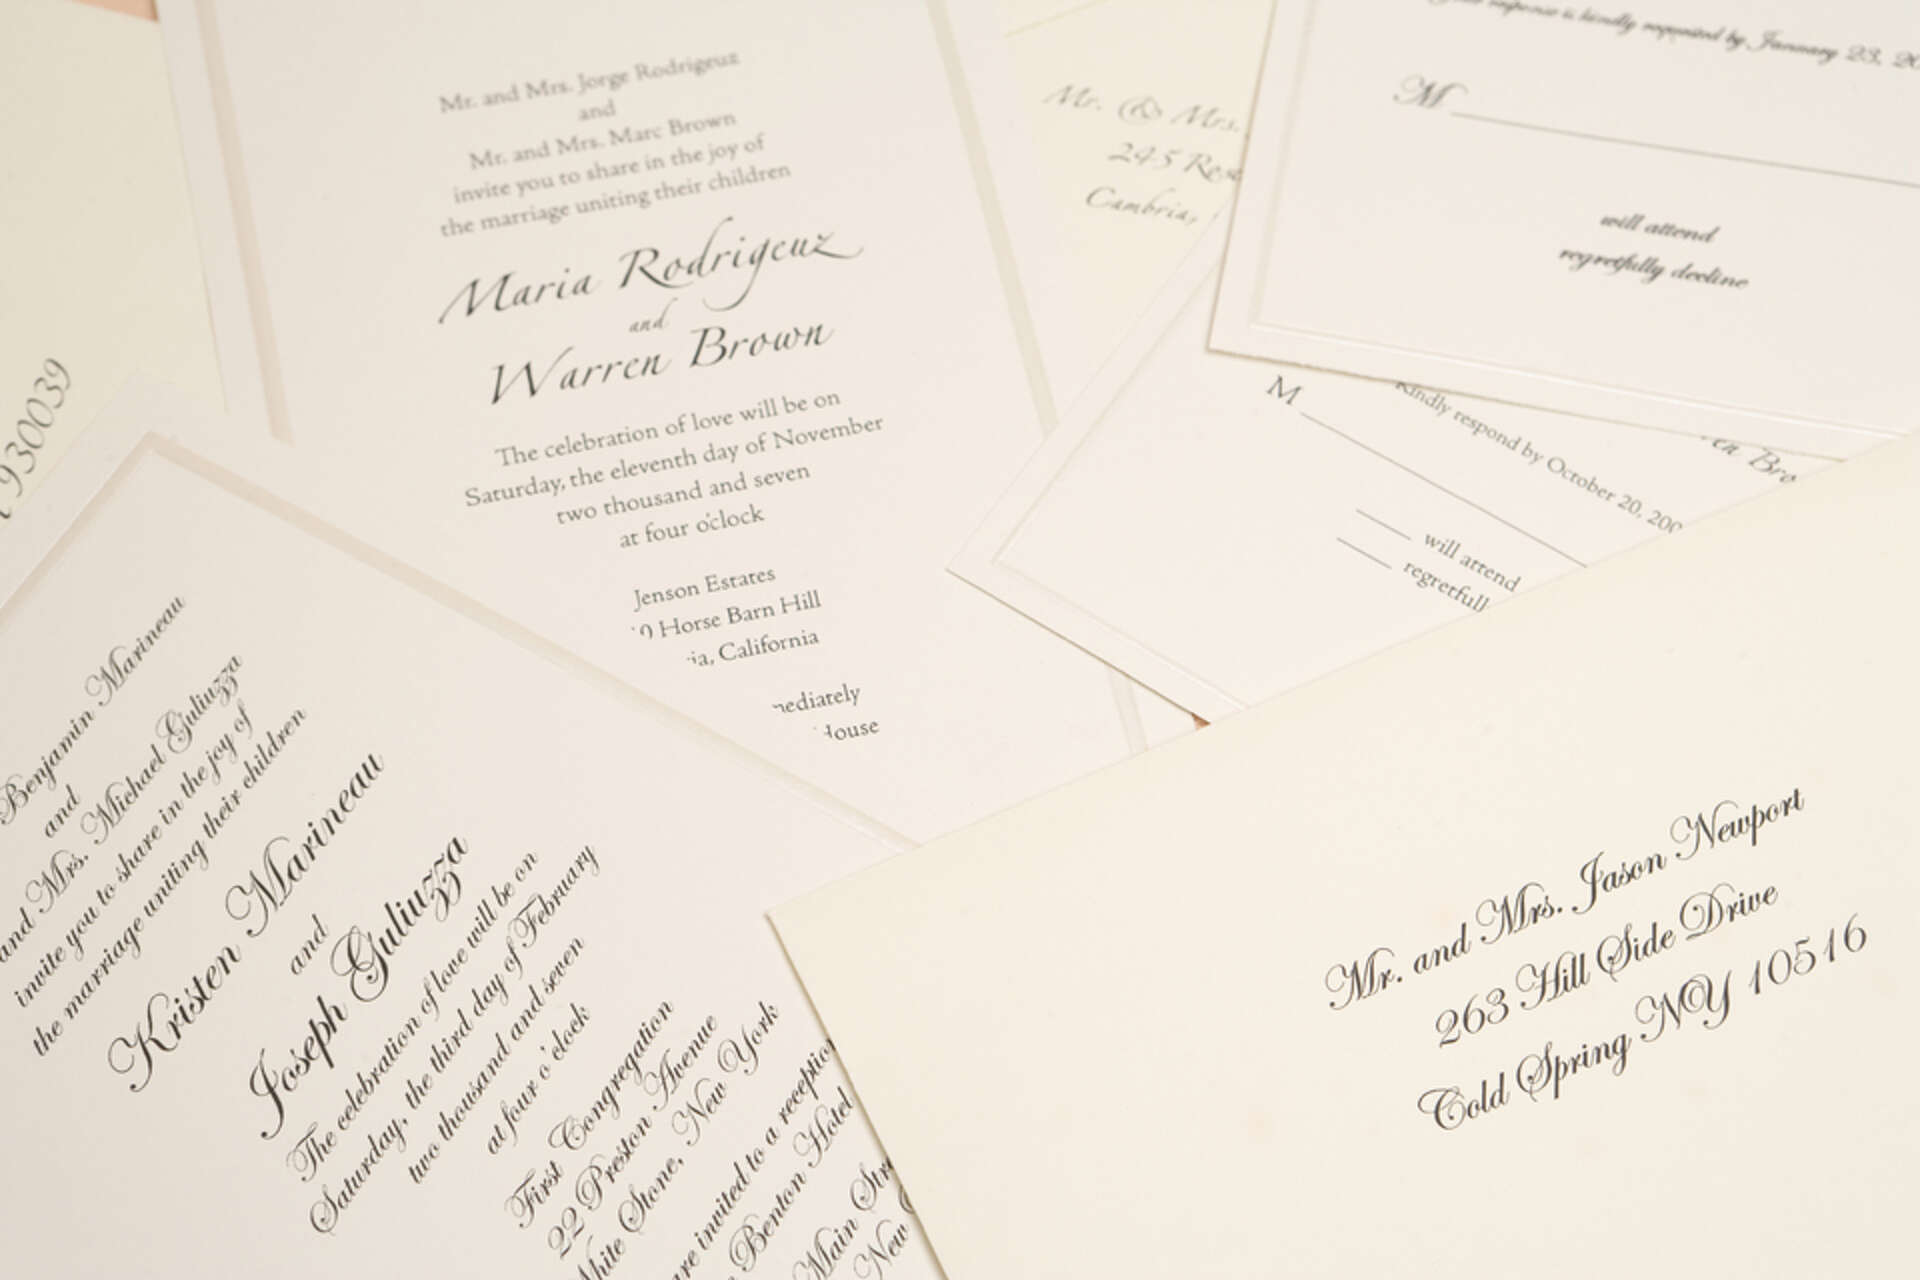 Mr. and Mrs. Jorge Rodrigeuz
and
Mr. and Mrs. Marc Brown
invite you to share in the joy of
the marriage uniting their children
Maria Rodrigeuz
and
Warren Brown
The celebration of love will be on
Saturday, the eleventh day of November
two thousand and seven
at four o'clock
Jenson Estates
0 Horse Barn Hill
California
House
Mr. & Mrs.
245
Cambria,
response is kindly requested by January 23,
M
will attend
regretfully decline
Kindly respond by October 20,
M
will attend
930039
Benjamin Marineau
and
and Mrs. Michael Guliuzza
invite you to share in the joy of
the marriage uniting their children
Kristen Marineau
and
Joseph Guliuzza
The celebration of love will be on
Saturday, the third day of February
two thousand and seven
at four o'clock
First Congregation
22 Preston Avenue
Stone, New York
invited to a reception
Benton Hotel
Main
New
Mr. and Mrs. Jason Newport
263 Hill Side Drive
Cold Spring NY 10516